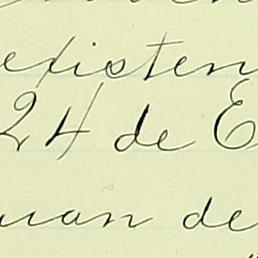 existen
24 de E
uan de